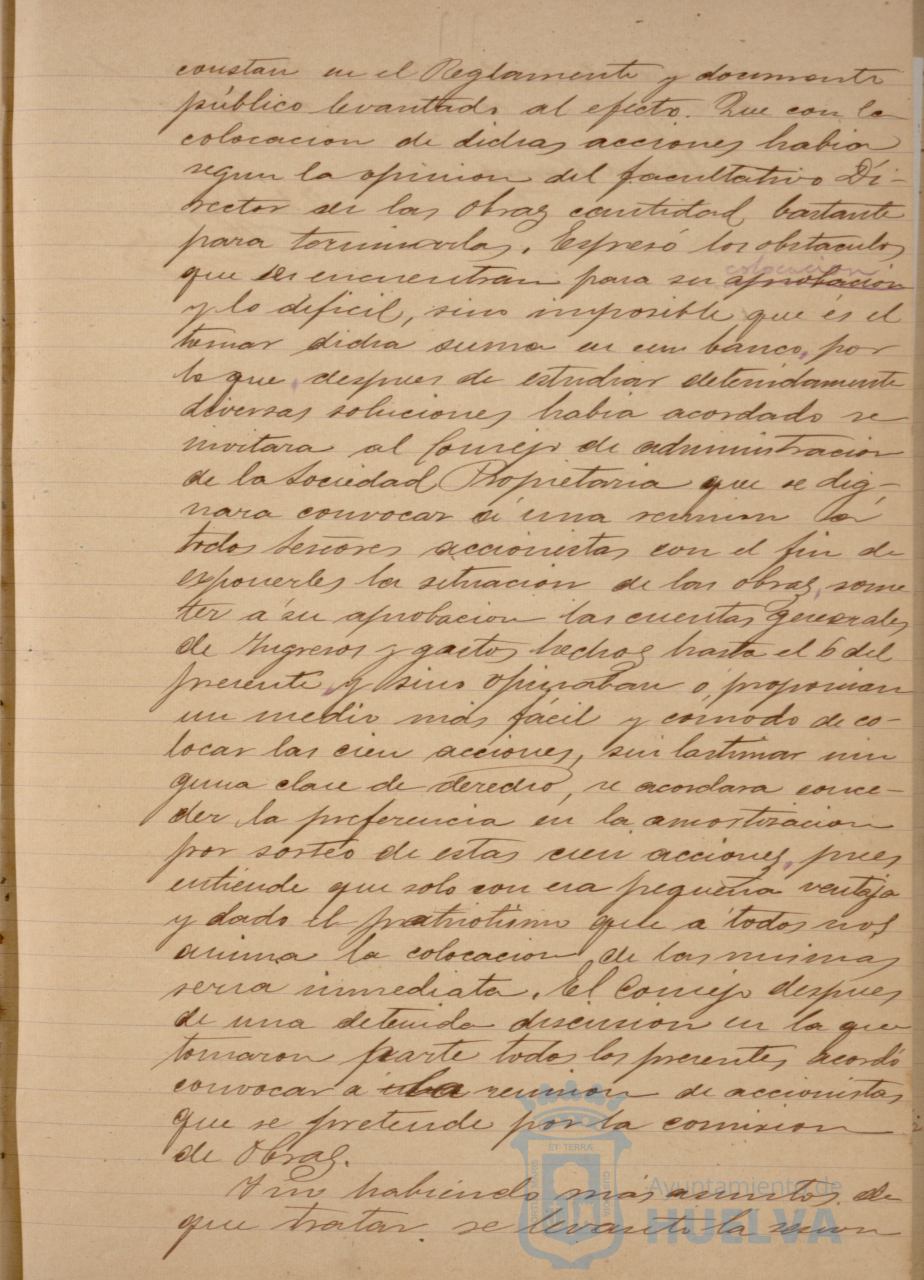 constan en el Reglamento y documento
público levantado al efecto. Que con la
colocacion de dichas acciones habia
segun la opinion del facultativo Di-
rector de las Obras cantidad bastante
para terminarlas. Expresó los obstaculos
que se encuentran para su aprobación colocacion
y lo dificil, sino imposible que és el
tomar dicha suma en un banco, por
lo que, despues de estudiar detenidamente
diversas soluciones habia acordado se
invitara al Consejo de administracion
de la Sociedad Propietaria que se dig-
nara convocar á una reunion á
todos señores accionistas con el fin de
exponerles la situacion de las obras, some
ter a su aprobacion las cuentas generales
de Ingresos y gastos hechos hasta el 6 del
presente, y sino opinaban o proponian
un medio más fácil y comodo de co-
locar las cien acciones, sin lastimar nin
guna clase de derecho, se acordara conce-
der la preferencia en la amortizacion
por sorteo de estas cien acciones, pues
entiende que solo con esa pequeña ventaja
y dado el patriotismo que a todos nos
anima la colocacion de las mismas
seria inmediata. El Consejo despues
de una detenida discusion en la que
tomaron parte todos los presentes acordó
convocar a la reunion de accionistas
que se pretende por la comision
de Obras.
Y no habiendo más asuntos de
que tratar se levantó la sesion
ET TERRA
Ayuntamiento de
HUELVA